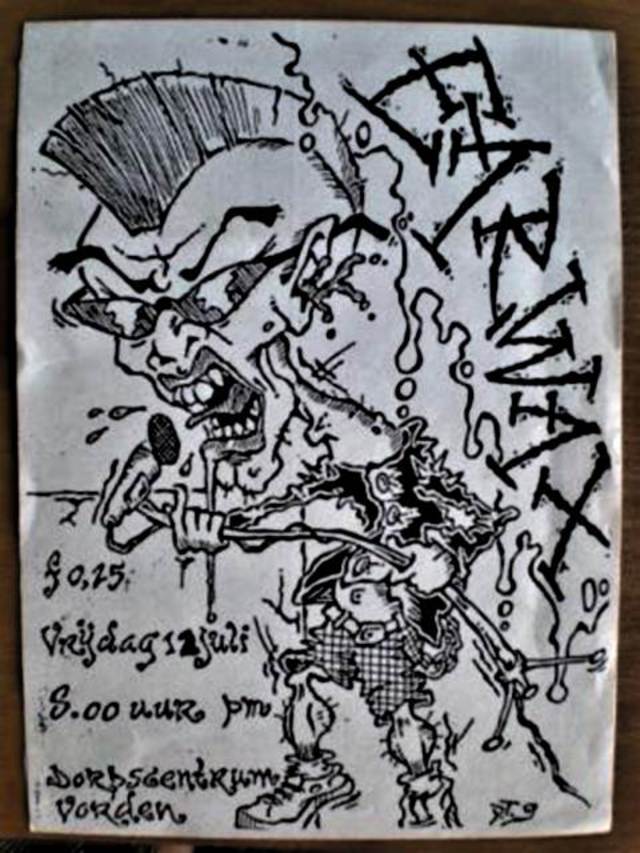 EARWAX
f 0,25
Vrijdag 12 juli
8.00 uur pm
Dorpscentrum
Vorden